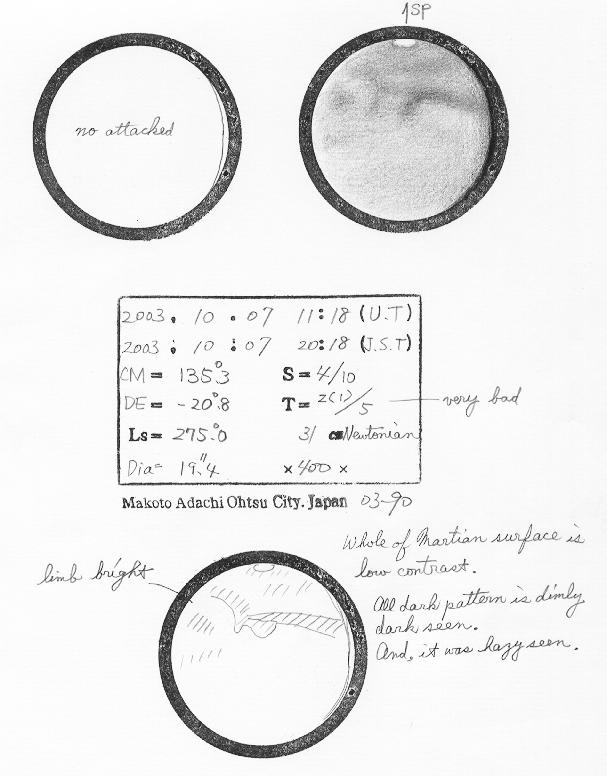 ↑SP
no attacked
2003. 10. 07 11:18 (U.T)
2003: 10: 07 20:18 (J.S.T)
CM = 135.°3 S = 4/10
DE = -20.°8 T = 2(1)/5 very bad
Ls = 275.°0 31 cm Newtonian
Dia = 19."4 ×400 ×
Makoto Adachi Ohtsu City. Japan 03-90
Whole of Martian surface is
low contrast.
limb bright
All dark pattern is dimly
dark seen.
And, it was hazy seen.